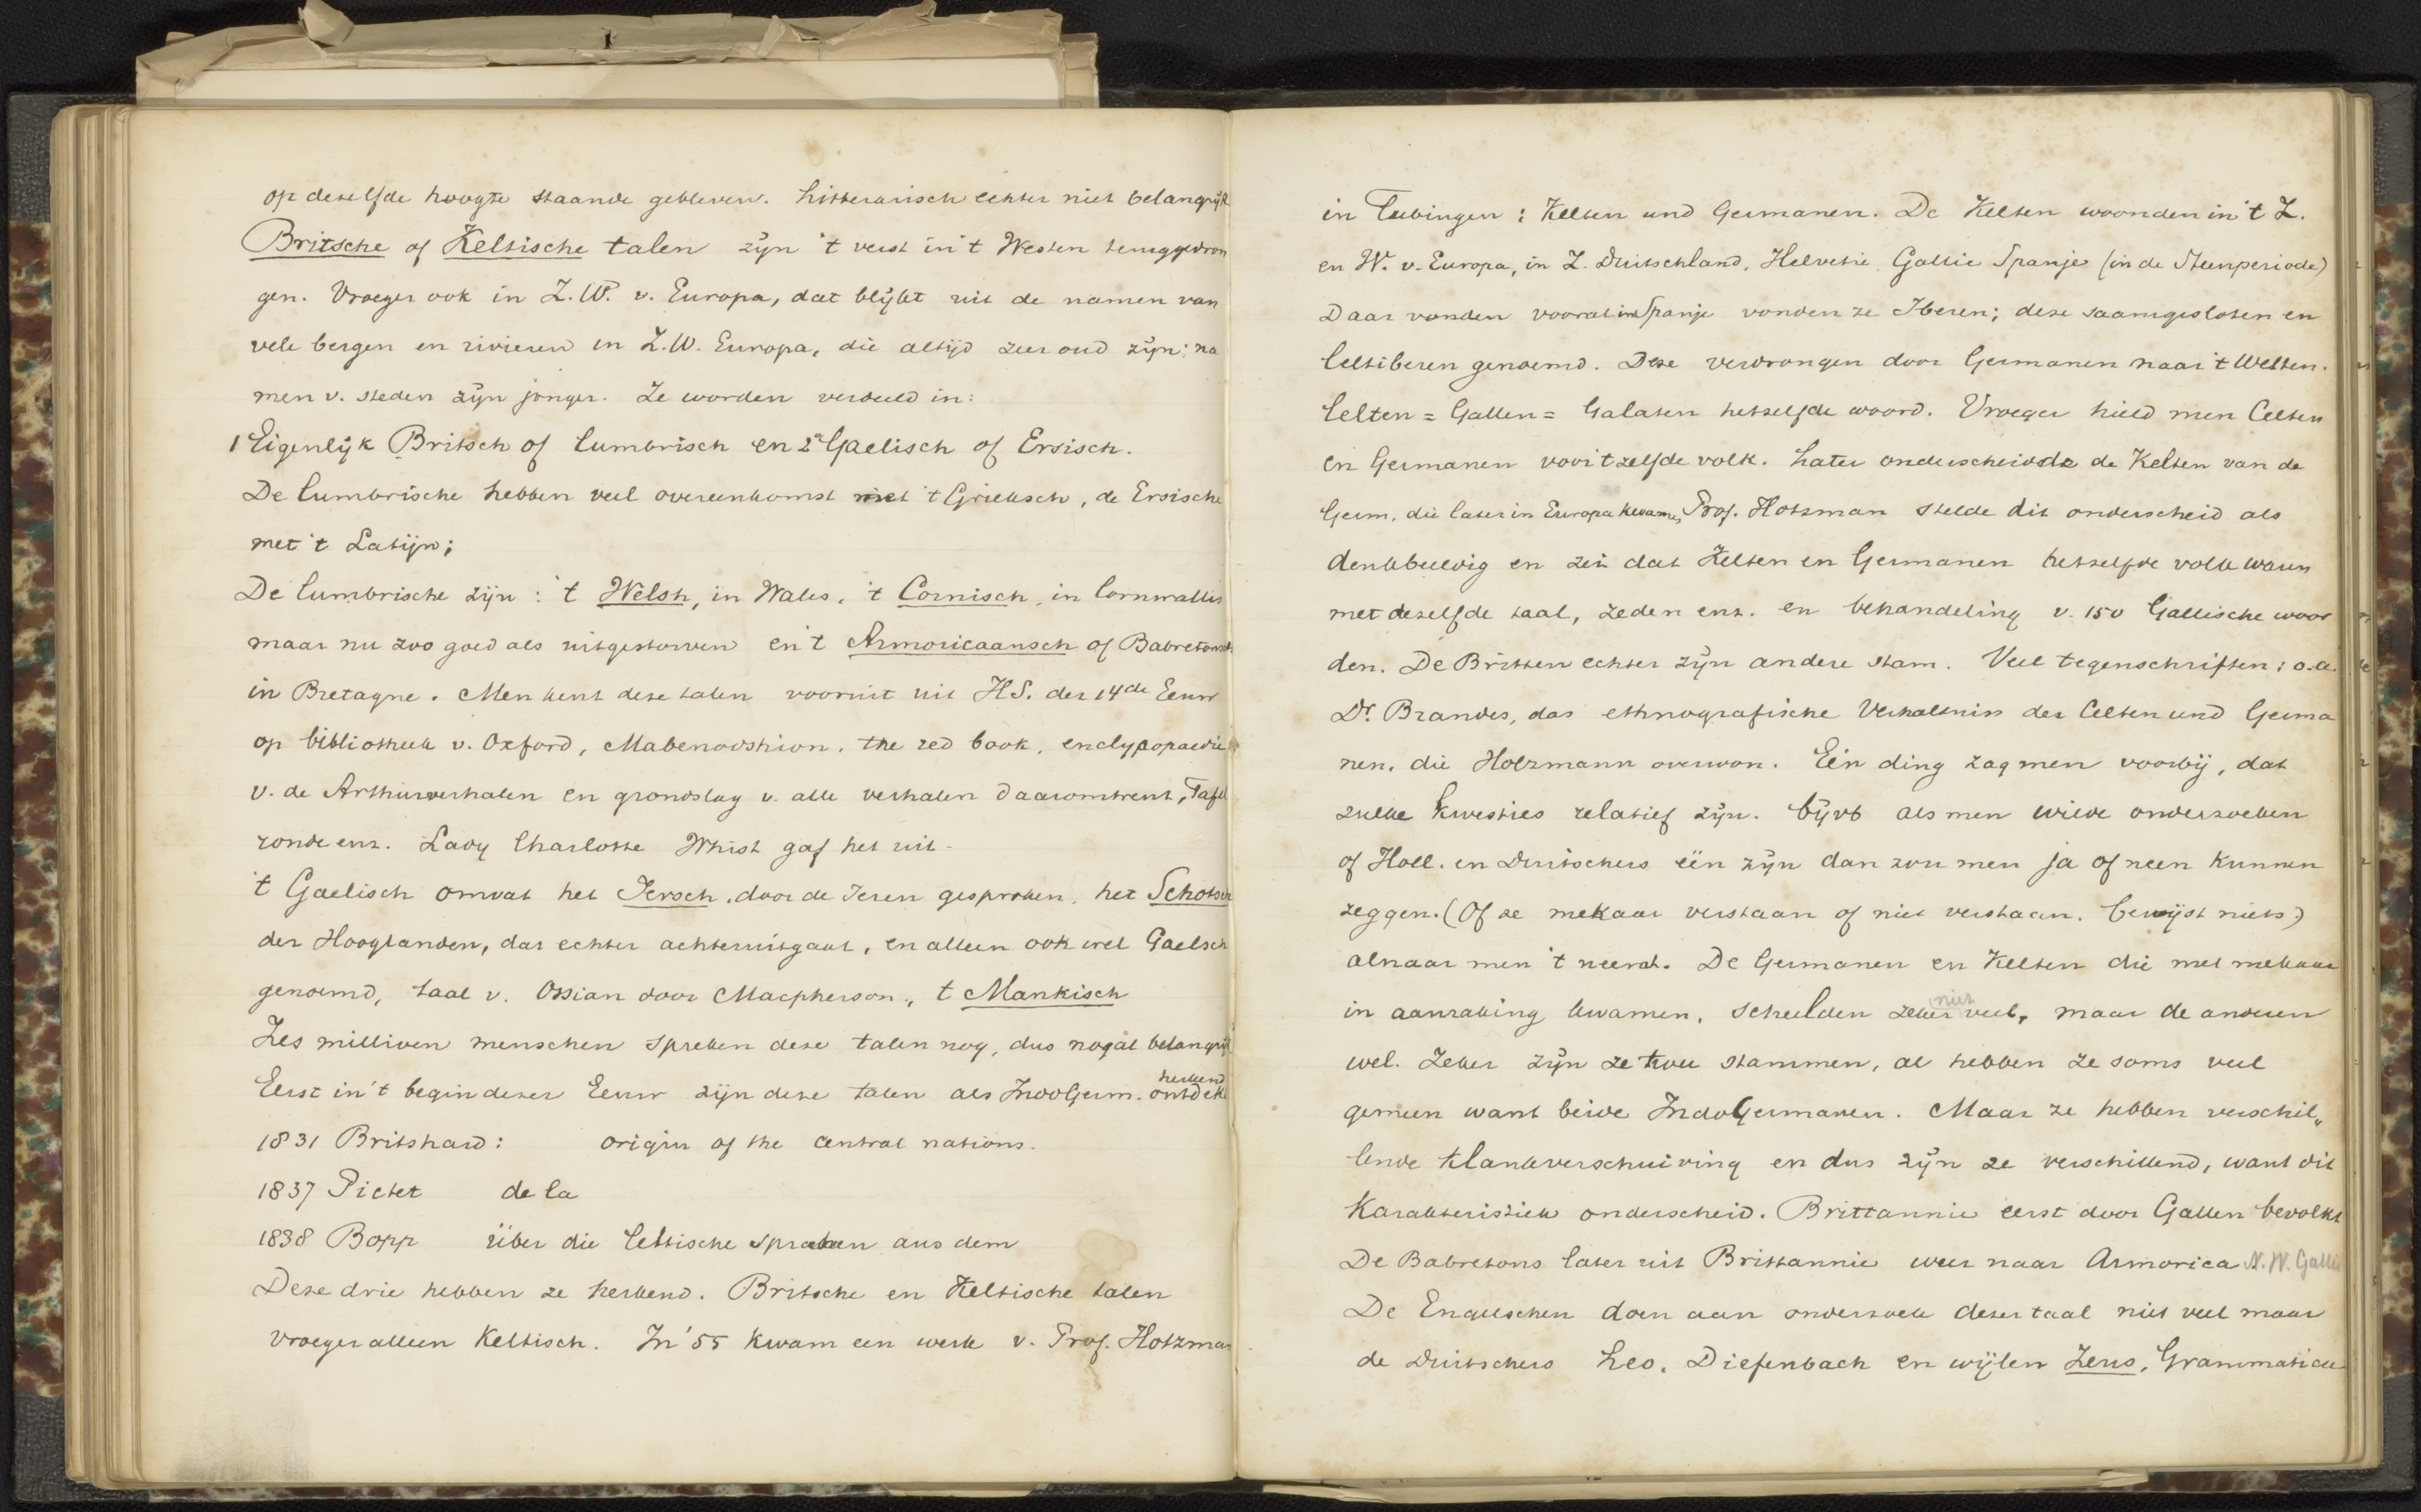 op dezelfde hoogte staande gebleven. Litterarisch echter niet belangrijk
Britsche of Keltische talen zijn 't verst in 't Westen teruggedron
gen. Vroeger ook in Z.W. v. Europa, dat blijkt uit de namen van
vele bergen en rivieren in Z.W. Europa, die altijd zeer oud zijn; na
men v. steden zijn jonger. Ze worden verdeeld in:
1 Eigenlijk Britsch of Cumbrisch en 2e Gaelisch of Ersisch.
De Cumbrische hebben veel overeenkomst met 't Grieksch, de Ersische
met 't Latijn;
De Cumbrische zijn : 't Welsh, in Wales, 't Cornisch, in Cornwallis
maar nu zoo goed als uitgestorven en 't Armoricaansch of Babretonsch
in Bretagne. Men kent deze talen vooruit uit H.S. der 14de Eeuw
op bibliotheek v. Oxford, Mabenovshion, the red book, enclypopaedie
v. de Arthurverhalen en grondslag v. alle verhalen daaromtrent, Tafel
ronde enz. Lady Charlotte Whist gaf het uit.
't Gaelisch omvat het Iersch, door de Ieren gesproken, het Schotsch
der Hooglanden, dat echter achteruitgaat, en alleen ook wel Gaelsch
genoemd, taal v. Ossian door Macpherson, 't Mankisch
Zes millioen menschen spreken deze talen nog, dus nogal belangrijk
Eerst in 't begin dezer Eeuw zijn deze talen als IndoGerm. ontdekt
herkend
1831 Britshard: origin of the central nations.
1837 Pictet de la
1838 Bopp über die Celtische sprachen aus dem
Deze drie hebben ze herkend. Britsche en Keltische talen
vroeger alleen Keltisch. In '55 kwam een werk v. Prof. Hotzman
in Tubingen : Kelten und Germanen. De Kelten woonden in 't Z.
en W. v. Europa, in Z. Duitschland, Helvetie Gallie Spanje (in de Steenperiode)
Daar vonden vooral in Spanje vonden ze Iberen; deze saamgesloten en
Celtiberen genoemd. Deze verdrongen door Germanen naar 't Westen.
Celten = Gallen = Galaten hetzelfde woord. Vroeger hield men Celten
en Germanen voor 't zelfde volk. Later onderscheidde de Kelten van de
Germ. die later in Europa kwamen, Prof. Hotzman stelde dit onderscheid als
denkbeeldig en zei dat Kelten en Germanen hetzelfde volk waren
met dezelfde taal, zeden enz. en behandeling v. 150 Gallische woor
den. De Britten echter zijn andere stam. Veel tegenschriften : o.a.
Dr. Brandes, das ethnografische Verhaltniss der Celten und Germa
nen, die Holzmann overwon. Eén ding zag men voorbij, dat
zulke kwesties relatief zijn. Bijvb als men wilde onderzoeken
of Holl. en Duitschers één zijn dan zou men ja of neen kunnen
zeggen. (Of ze mekaar verstaan of niet verstaan, bewijst niets)
alnaar men 't neemt. De Germanen en Kelten die met mekaar
in aanraking kwamen, scheelden zeker niet veel, maar de anderen
wel. Zeker zijn ze twee stammen, al hebben ze soms veel
gemeen want beide IndoGermanen. Maar ze hebben verschil„
lende klankverschuiving en dus zijn ze verschillend, want dit
karakteristiek onderscheid. Brittannie eerst door Gallen bevolkt
De Babretons later uit Brittannie weer naar Armorica N.W. Gallie
De Engelschen doen aan onderzoek dezer taal niet veel maar
de Duitschers Leo, Diefenbach en wijlen Zeus, Grammatica